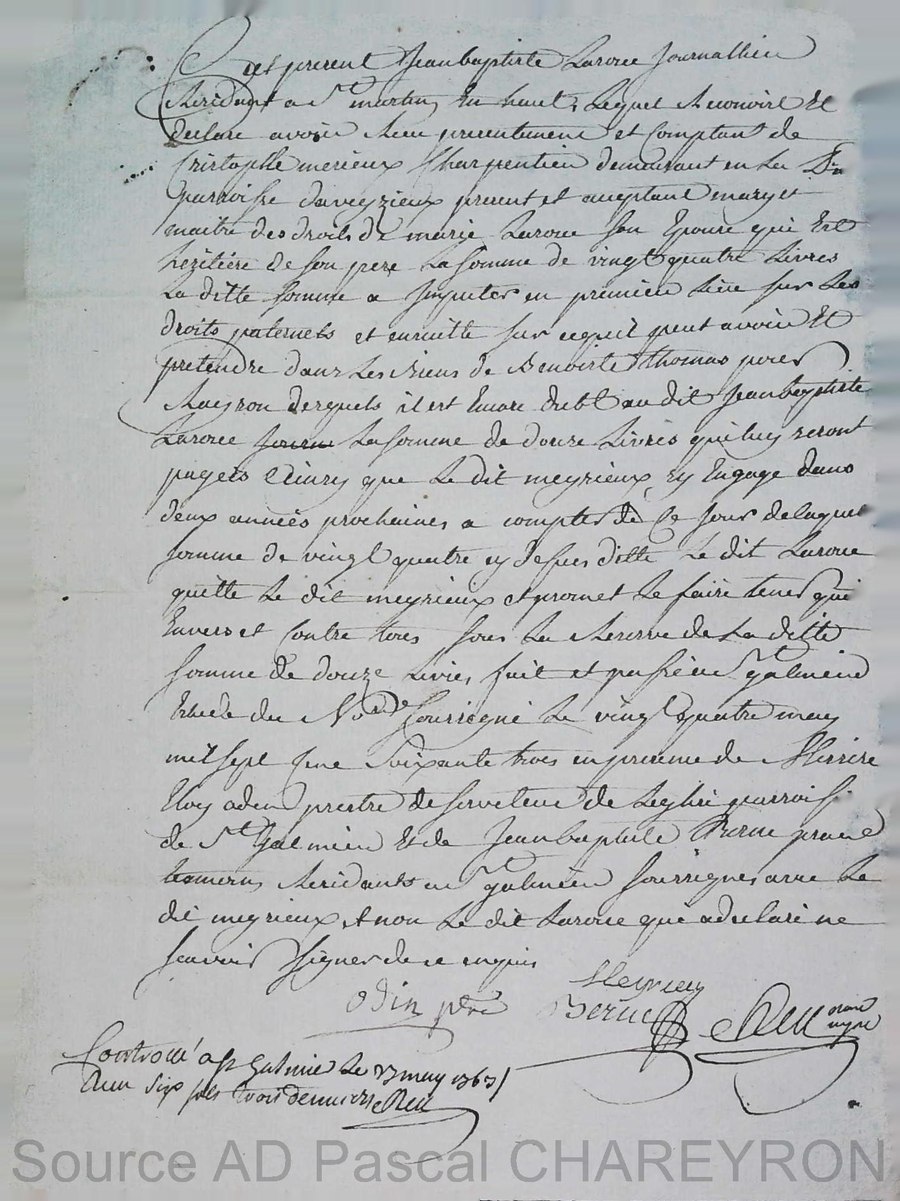 Est present Jeanbaptiste Laroue Journallien
Residant a St martin En haut, Lequel Reconoist Et
declare avoir Receu presentement et Comptant de
Cristophle merieux Charpentier demeurant en La De
parroisse daveyzieux present et aceptant mary et
maitre des droits de marie Laroue Son Epouse qui Est
heritière de Son pere La Somme de vingt quatre Livres
La ditte Somme a Imputer en premier Lieu Sur Les
droits paternels et ensuitte Sur ce quil peut avoir Et
pretendre dans Les Biens de Benoiste Thomas
desquels il est Encore dubt au dit Jeanbaptiste
Laroue La Somme de douze Livres qui luy seront
payets que Le dit meyrieux sy Engage dans
deux années prochaines a compter de Ce Jour de laquel
Somme de vingt quatre cy dessus ditte Le dit Laroue
quitte Le dit meyrieux et promet Le faire tenir qui
Envers et Contre tous Sous La Reserve de La ditte
Somme de douze Livres, fait et passé en St galmier
Etude du Nre Soussigné Le vingt quatre may
mil sept Cent Soixante trois en presence de Messire
Eloy odin prestre deserviteur de
de St Galmier Et de Jeanbaptiste Berne
temoins Residants en St galmier Soussignes avec Le
dit meyrieux et non Le dit Laroue que a declaré ne
Scavoir Signer de ce enquis
odin ptre Meyrieu
Berne
Controllé a St Galmier Le 27 may 1763
Recu Six sols trois denniers
Source AD Pascal CHAREYRON